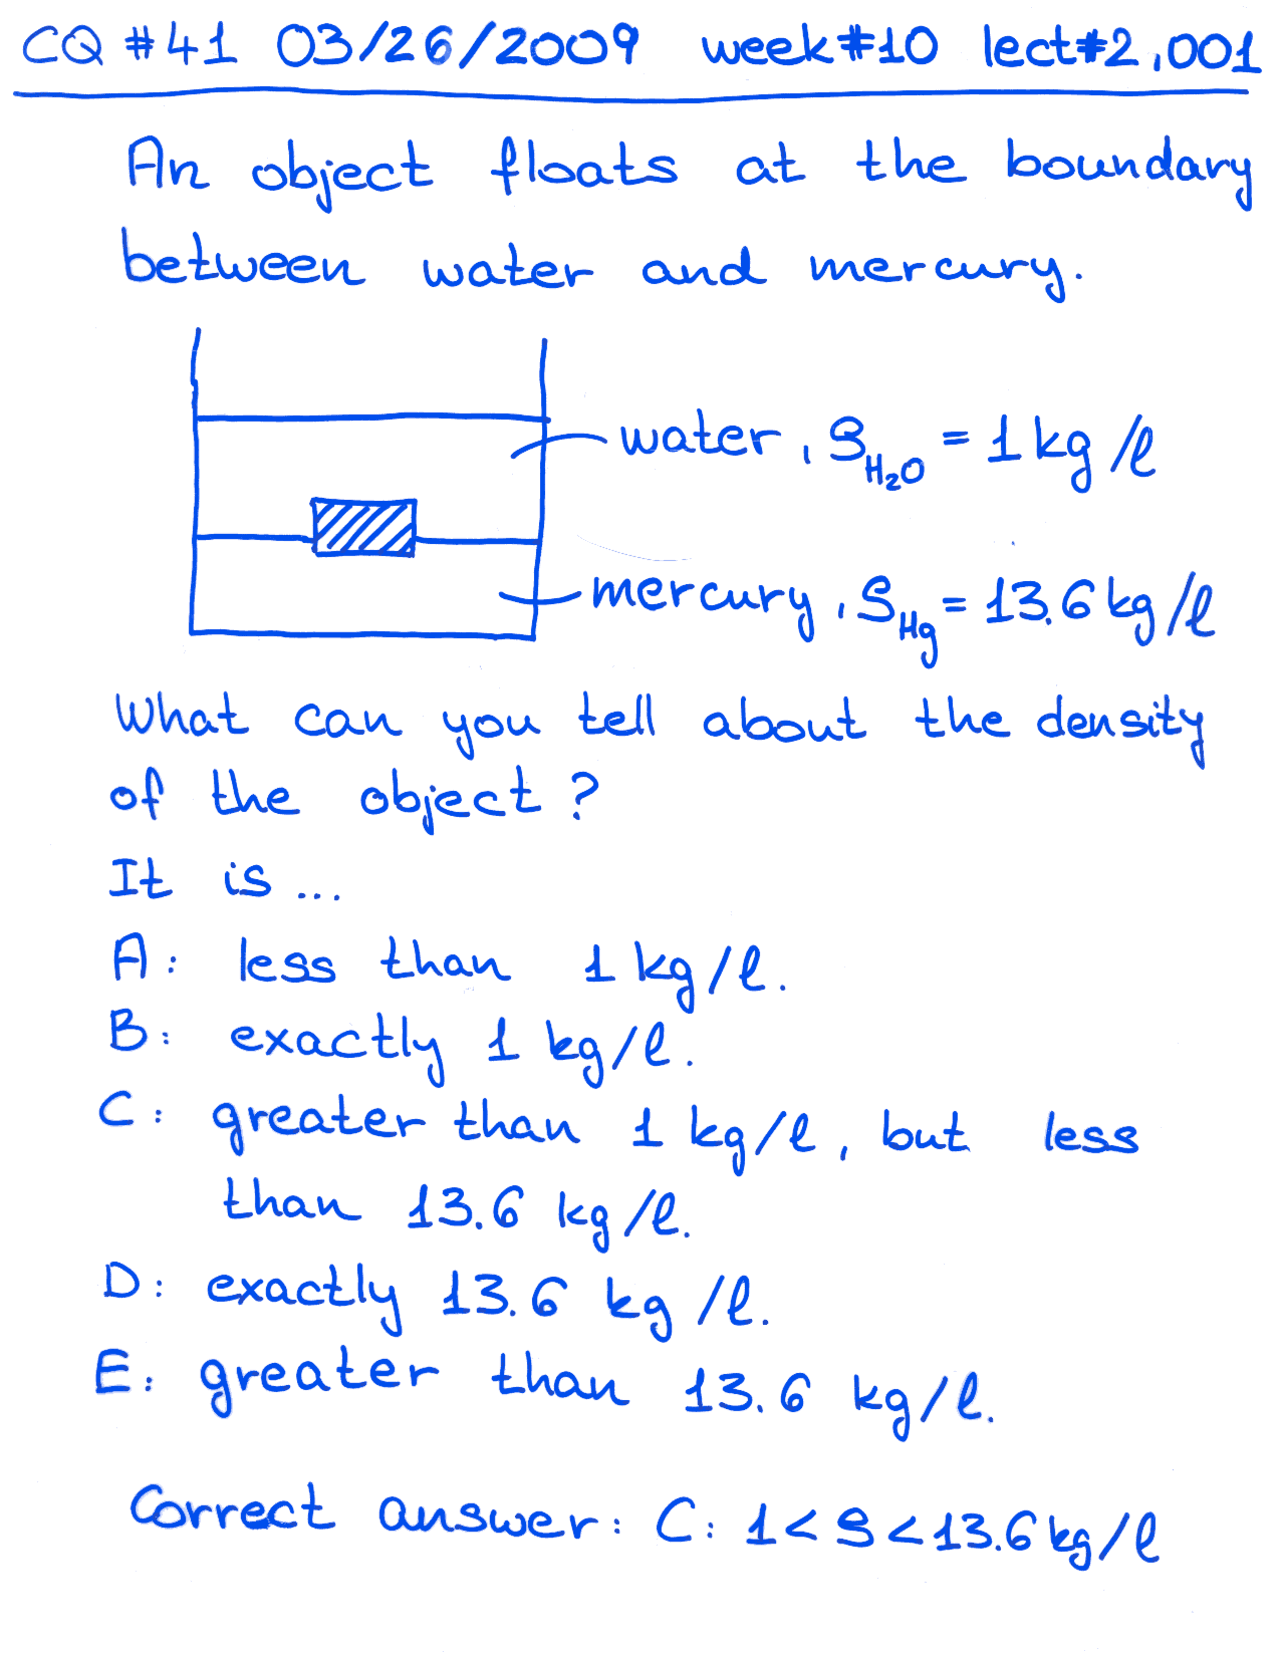 CQ #41 03/26/2009 week#10 lect#2,001
An object floats at the boundary
between water and mercury.
water, ρH₂O = 1 kg/ℓ
mercury, ρHg = 13.6 kg/ℓ
What can you tell about the density
of the object?
It is ...
A: less than 1 kg/ℓ.
B: exactly 1 kg/ℓ.
C: greater than 1 kg/ℓ, but less
than 13.6 kg/ℓ.
D: exactly 13.6 kg/ℓ.
E: greater than 13.6 kg/ℓ.
Correct answer: C: 1 < ρ < 13.6 kg/ℓ